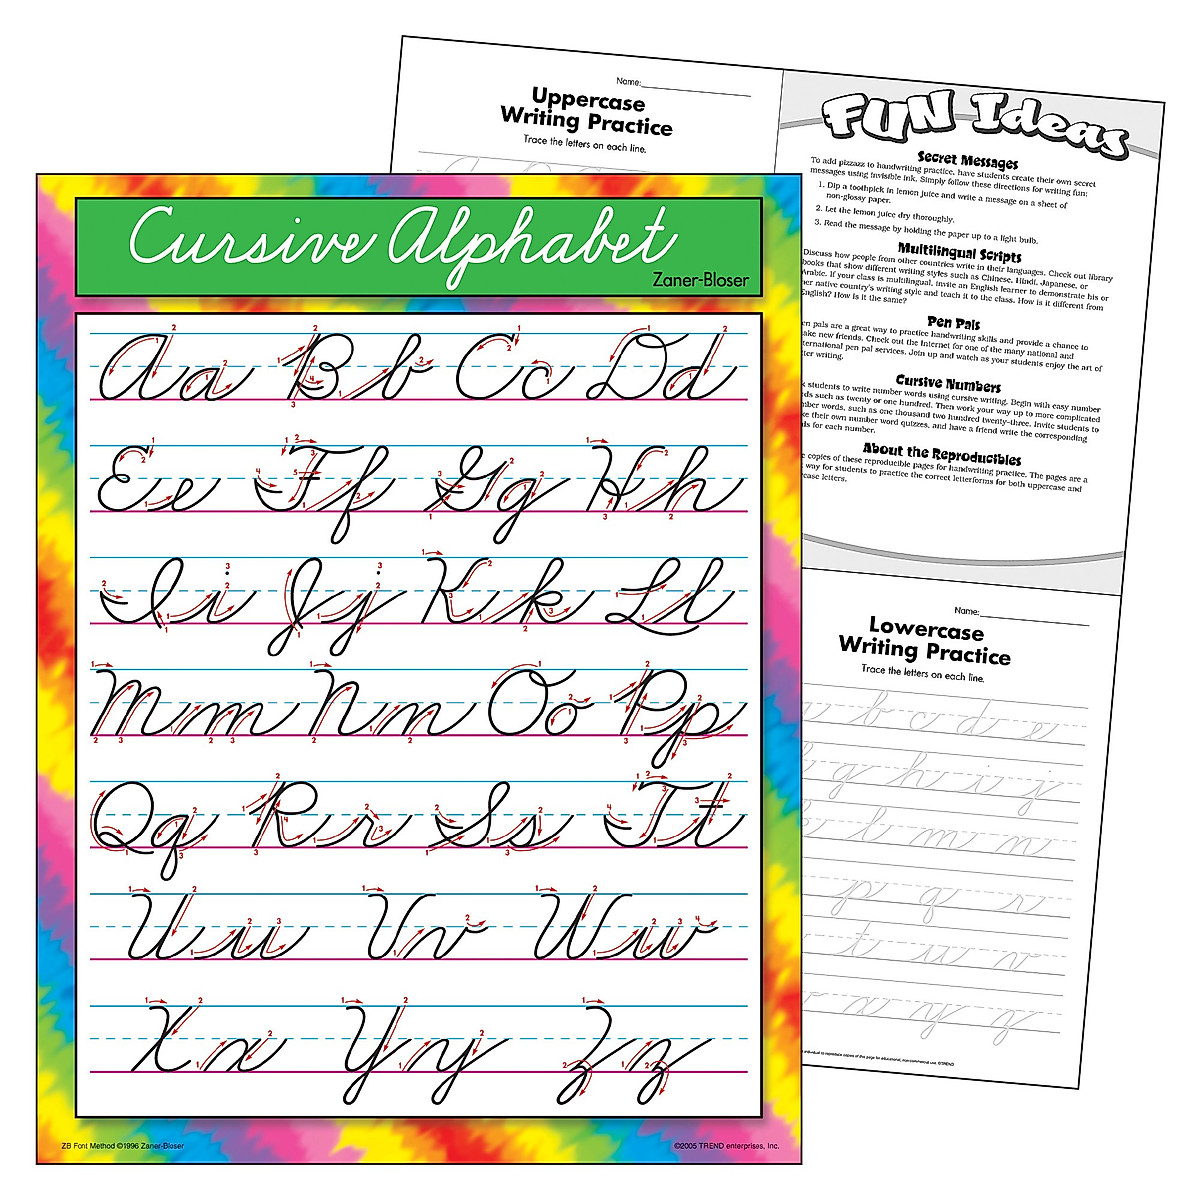 Cursive Alphabet
Zaner-Bloser
Aa Bb Cc Dd
Ee Ff Gg Hh
Ii Jj Kk Ll
Mm Nn Oo Pp
Qq Rr Ss Tt
Uu Vv Ww
Xx Yy Zz
ZB Font Method ©1996 Zaner-Bloser
©2005 TREND enterprises, Inc.
Name:
Uppercase
Writing Practice
Trace the letters on each line.
FUN Ideas
Secret Messages
To add pizzazz to handwriting practice, have students create their own secret
messages using invisible ink. Simply follow these directions for writing fun:
1. Dip a toothpick in lemon juice and write a message on a sheet of
non-glossy paper.
2. Let the lemon juice dry thoroughly.
3. Read the message by holding the paper up to a light bulb.
Multilingual Scripts
Discuss how people from other countries write in their languages. Check out library
books that show different writing styles such as Chinese, Hindi, Japanese, or
Arabic. If your class is multilingual, invite an English learner to demonstrate his or
her native country's writing style and teach it to the class. How is it different from
English? How is it the same?
Pen Pals
pals are a great way to practice handwriting skills and provide a chance to
new friends. Check out the Internet for one of the many national and
pen pal services. Join up and watch as your students enjoy the art of
writing.
Cursive Numbers
students to write number words using cursive writing. Begin with easy number
such as twenty or one hundred. Then work your way up to more complicated
words, such as one thousand two hundred twenty-three. Invite students to
their own number word quizzes, and have a friend write the corresponding
for each number.
About the Reproducibles
copies of these reproducible pages for handwriting practice. The pages are a
way for students to practice the correct letterforms for both uppercase and
letters.
Name:
Lowercase
Writing Practice
Trace the letters on each line.
b c d e
g h i j
l m n
p q r
t u v
x y z
individual to reproduce copies of this page for educational, non-commercial use. ©TREND